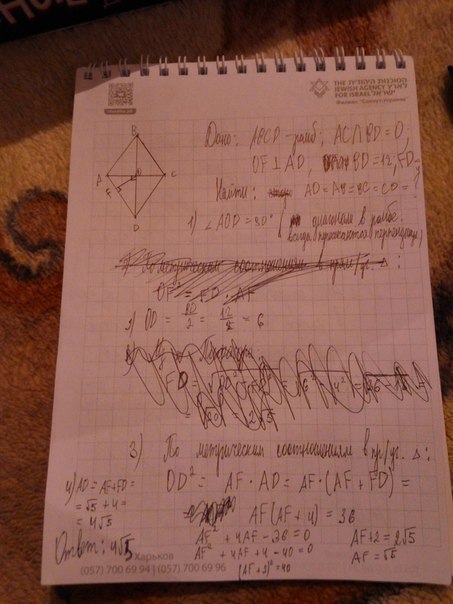 הסוכנות היהודית
לארץ ישראל
THE
JEWISH AGENCY
FOR ISRAEL
B
A
O
C
F
D
Дано: ABCD - ромб; AC∩BD=O;
OF⊥AD, BD=12, FD=
Найти: AD=AB=BC=CD=?
1) ∠AOD=90° (диагонали в ромбе
всегда пересекаются
По метрическим соотношениям в пр/уг. Δ:
OF² = FD · AF
2) OD = BD/2 = 12/2 = 6
3) По метрическим соотношениям в пр/уг. Δ:
OD² = AF · AD = AF · (AF + FD) =
AF(AF+4) = 36
AF² + 4AF - 36 = 0
AF² + 4AF + 4 - 40 = 0
(AF+2)² = 40
AF+2 = 2√5
AF = √5
4) AD = AF+FD =
= √5 + 4 =
= 4√5
Ответ: 4√5
Харьков
(057) 700 69 94 | (057) 700 69 96